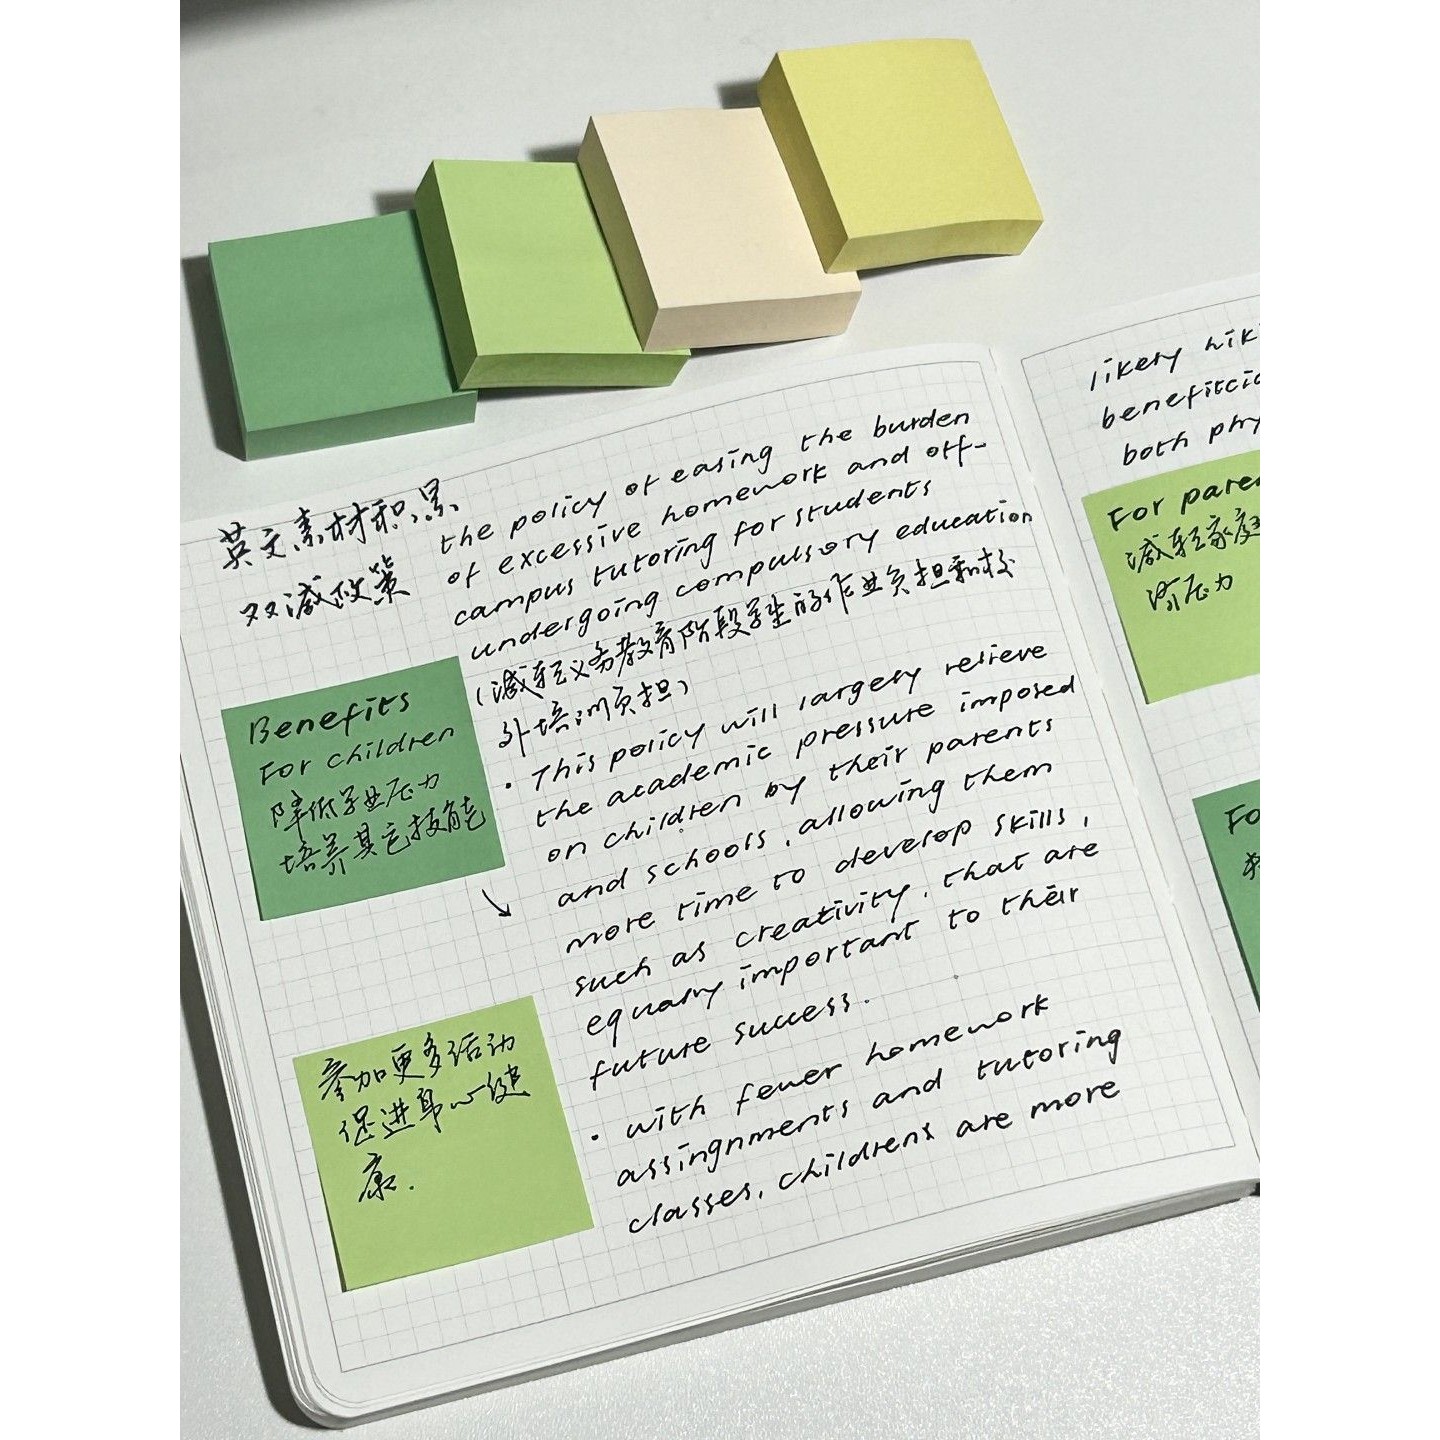 英文素材积累
双减政策
the policy of easing the burden
of excessive homework and off-
campus tutoring for students
undergoing compulsory education
(减轻义务教育阶段学生的作业负担和校
外培训负担)
Benefits
For children
降低学业压力
培养其它技能
· This policy will largely relieve
the academic pressure imposed
on children by their parents
and schools, allowing them
more time to develop skills,
such as creativity, that are
equally important to their
future success.
参加更多活动
促进身心健
康.
· with fewer homework
assingnments and tutoring
classes, childrens are more
likely
both
For
减轻家庭
济压力